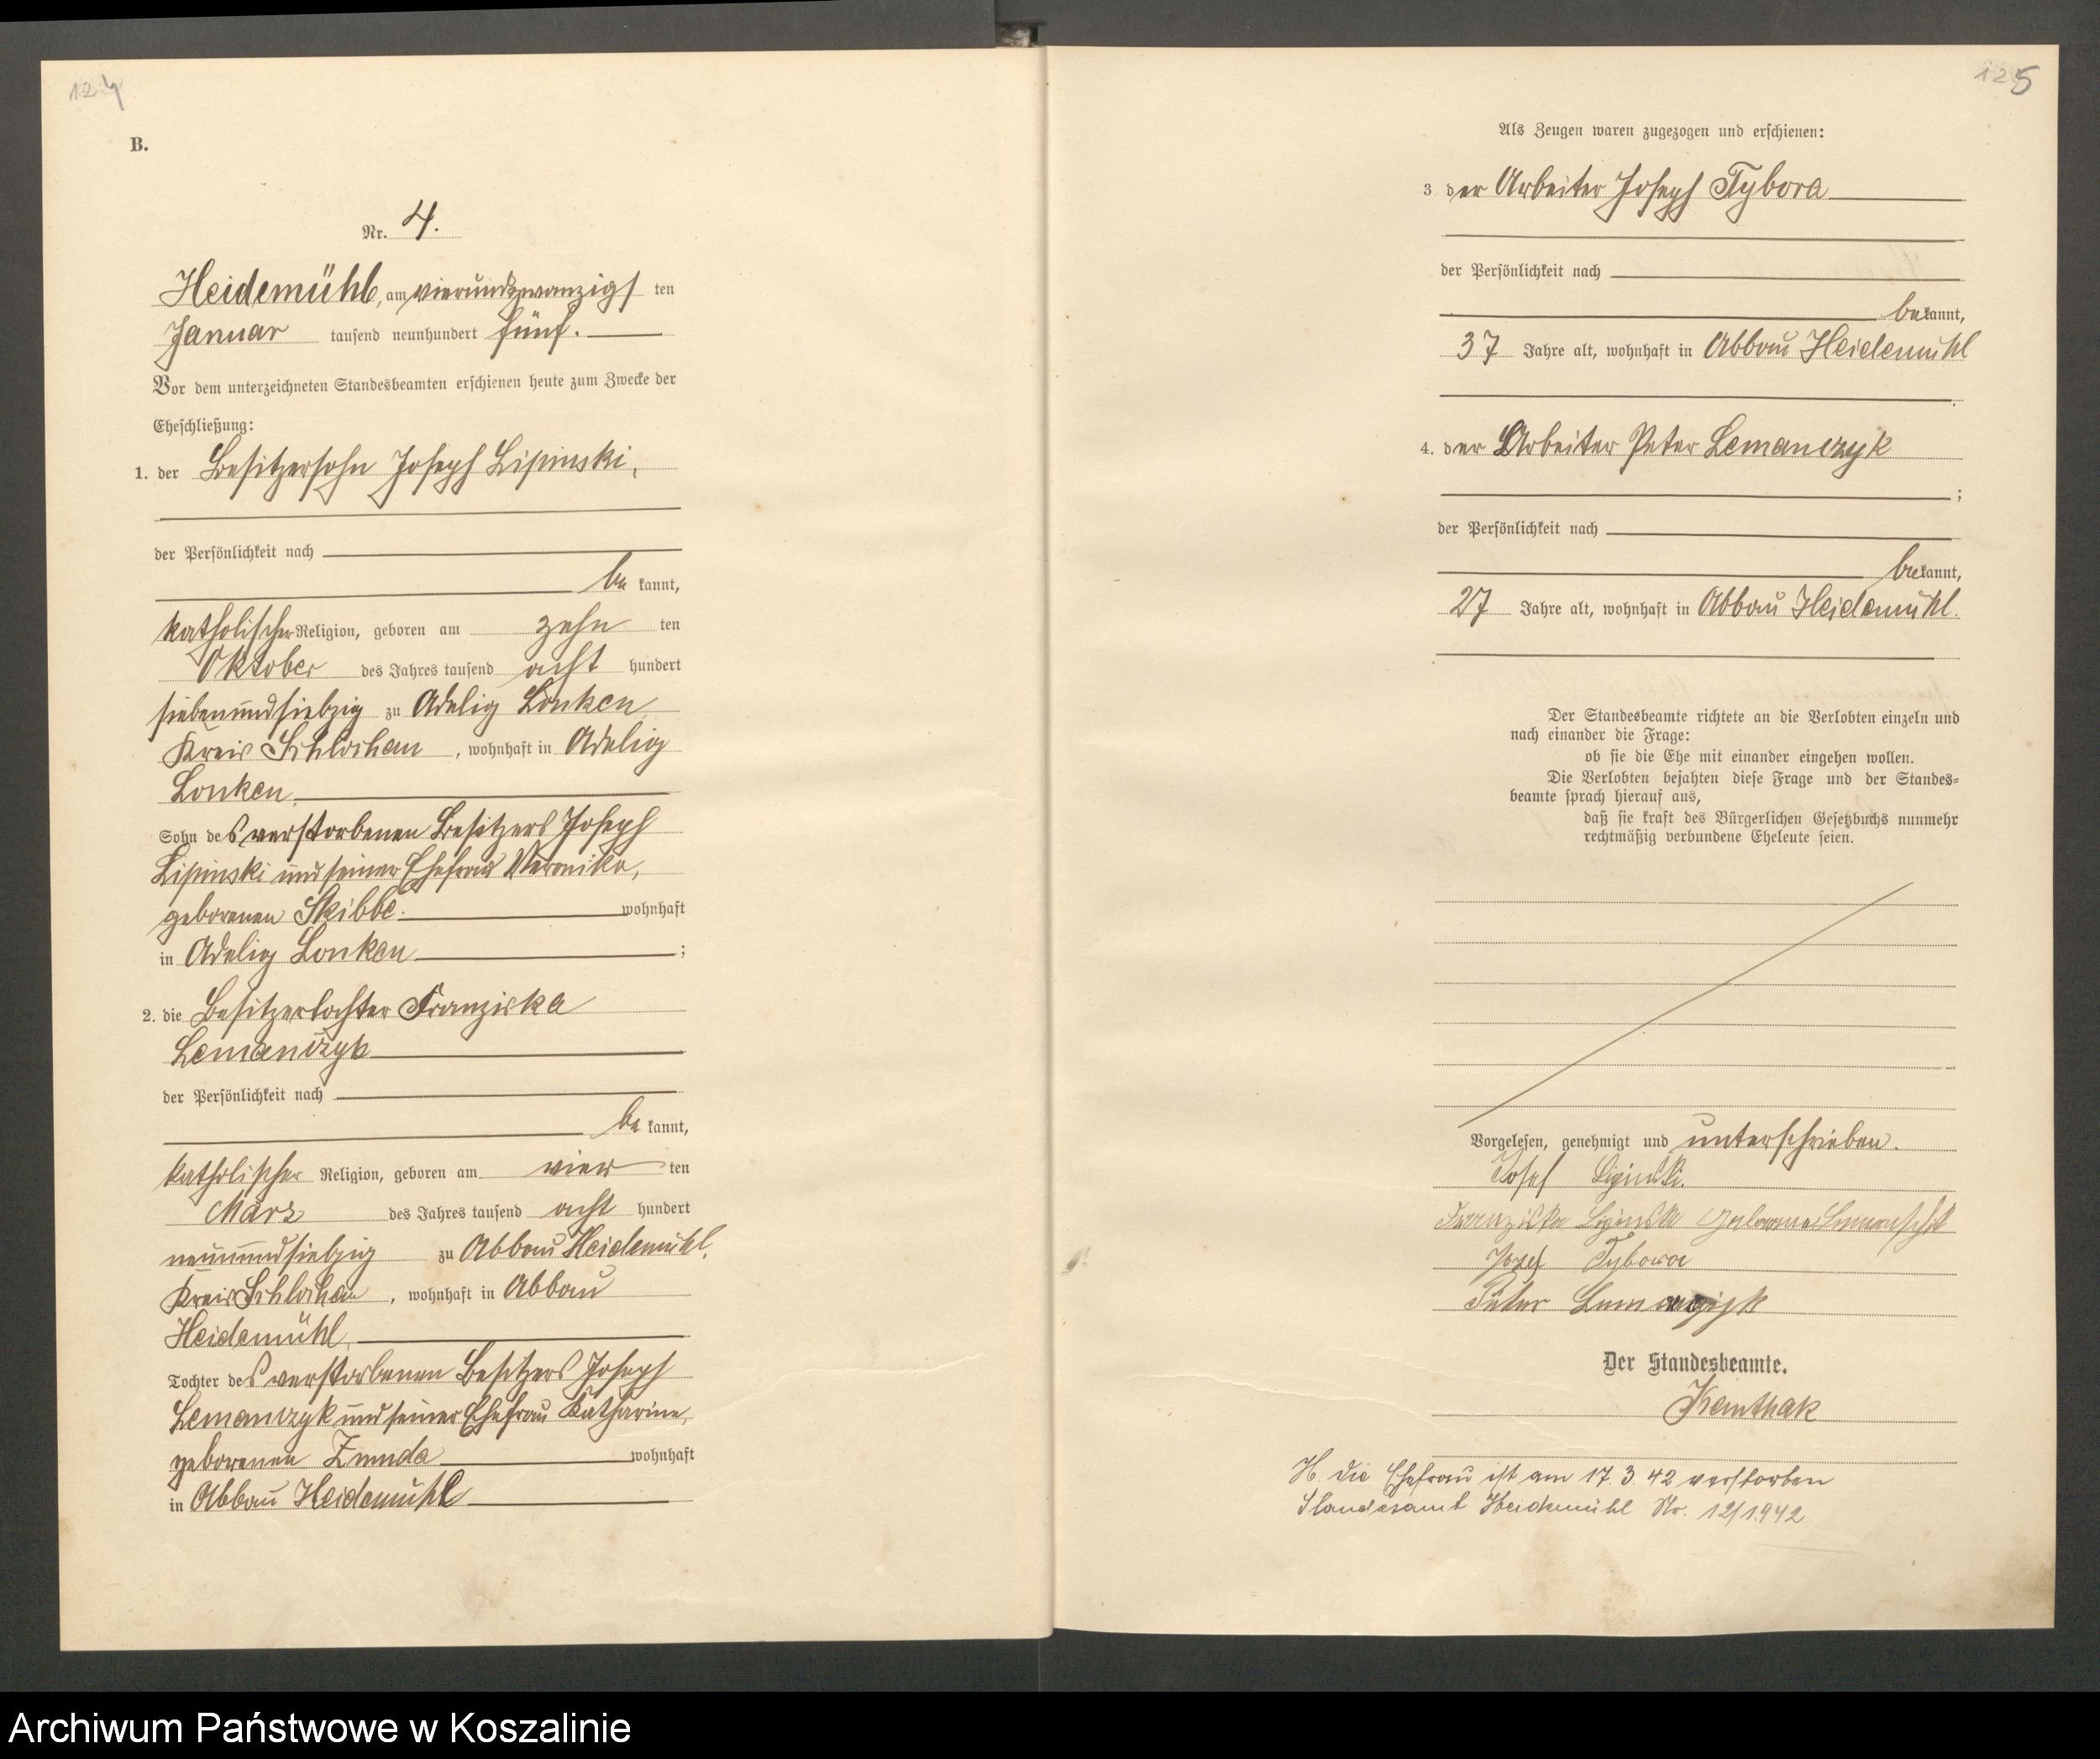 124
B.
Nr. 4.
Heidemühl, am vierundzwanzigs ten
Januar tausend neunhundert fünf.
Vor dem unterzeichneten Standesbeamten erschienen heute zum Zwecke der
Eheschließung:
1. der Besitzersohn Joseph Lipinski,
der Persönlichkeit nach
be kannt,
katholischer Religion, geboren am zehn ten
Oktober des Jahres tausend acht hundert
siebenundsiebzig zu Adelig Lonken
Kreis Schlochau, wohnhaft in Adelig
Lonken.
Sohn des verstorbenen Besitzers Joseph
Lipinski und seiner Ehefrau Veronika,
geborenen Skibbe. wohnhaft
in Adelig Lonken ;
2. die Besitzertochter Franziska
Lemanczyk
der Persönlichkeit nach
be kannt,
katholischer Religion, geboren am vier ten
März des Jahres tausend acht hundert
neunundsiebzig zu Abbau Heidemühl,
Kreis Schlochau, wohnhaft in Abbau
Heidemühl,
Tochter des verstorbenen Besitzers Joseph
Lemanczyk und seiner Ehefrau Katharine,
geborenen Zmuda wohnhaft
in Abbau Heidemühl
125
Als Zeugen waren zugezogen und erschienen:
3 der Arbeiter Joseph Tybora
der Persönlichkeit nach
bekannt,
37 Jahre alt, wohnhaft in Abbau Heidemühl
4. der Arbeiter Peter Lemanczyk
;
der Persönlichkeit nach
bekannt,
27 Jahre alt, wohnhaft in Abbau Heidemühl.
Der Standesbeamte richtete an die Verlobten einzeln und
nach einander die Frage:
ob sie die Ehe mit einander eingehen wollen.
Die Verlobten bejahten diese Frage und der Standes=
beamte sprach hierauf aus,
daß sie kraft des Bürgerlichen Gesetzbuchs nunmehr
rechtmäßig verbundene Eheleute seien.
Vorgelesen, genehmigt und unterschrieben.
Josef Lipinski.
Franziska Lipinska geborene
Jozef Tybora
Peter
Der Standesbeamte.
H. die Ehefrau ist am 17. 3. 42 verstorben
Standesamt Heidemühl Nr. 12/1942
Archiwum Państwowe w Koszalinie